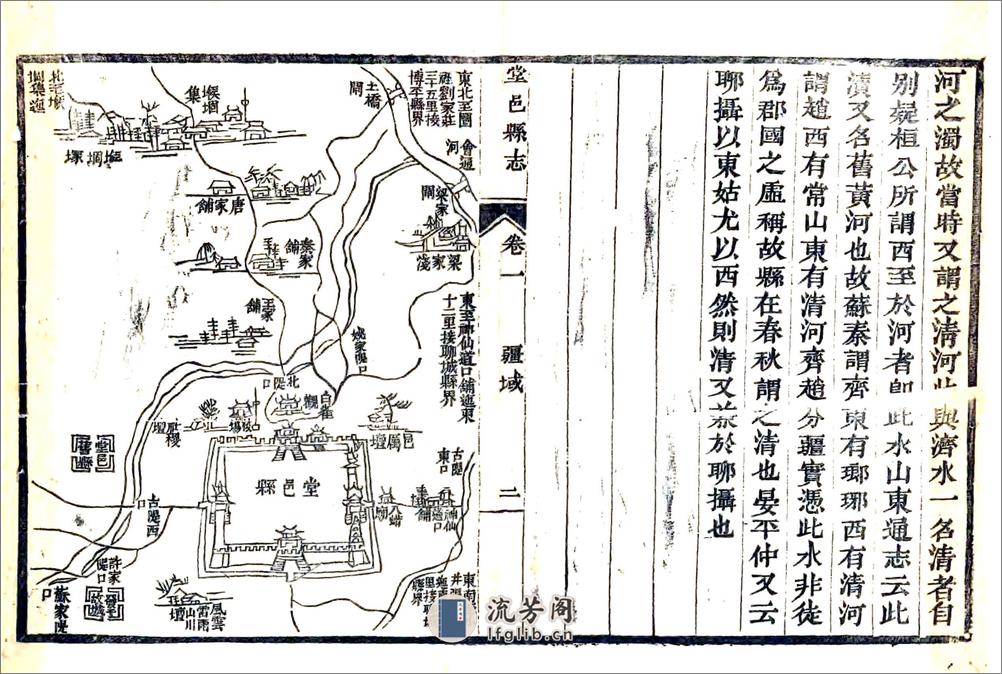 河之濁故當時又謂之清河此與濟水一名清者自
別疑桓公所謂西至於河者卽此水山東通志云此
瀆又名舊黃河也故蘇秦謂齊東有瑯琊西有清河
謂趙西有常山東有清河齊趙分疆實憑此水非徒
為郡國之虛稱故縣在春秋謂之清也晏平仲又云
聊攝以東姑尤以西然則清又兼於聊攝也
堂邑縣志
卷一
疆域
二
東北至闇
莊劉家莊
三十五里接
博平縣界
土橋
閘
會通
河
梁家
閘
梁家淺
堠堌
集
唐家舖
秦家
舖
王家
舖
東至神仙道口舖迤東
十二里接聊城縣界
姚家隄口
北隄口
白雀
觀
教場
社稷
壇
邑厲
壇
堂邑縣
古隄
東口
八蜡
廟
神仙
道口
舖
古隄西
口
許家
隄口
蘇家隄
口
風雲
雷雨
山川
壇
東南
流芳阁
lfglib.cn